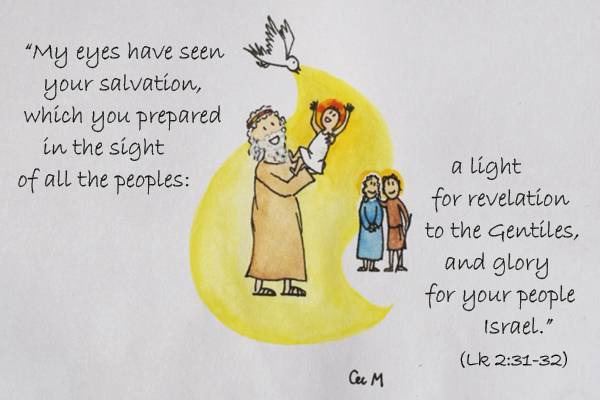 “My eyes have seen
your salvation,
which you prepared
in the sight
of all the peoples:
a light
for revelation
to the Gentiles,
and glory
for your people
Israel.”
(Lk 2:31-32)
Cec M